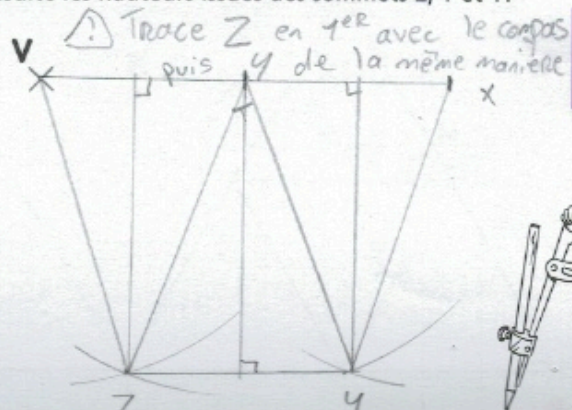 ⚠ Trace Z en 1ER avec le compas
puis Y de la même manière
V
Y
X
Z
Y